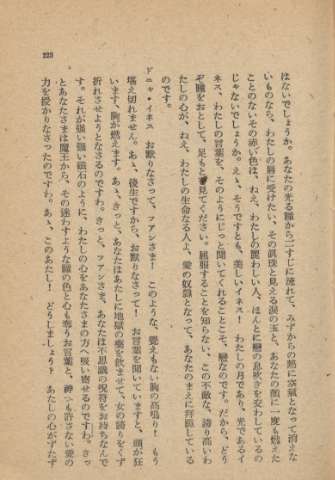 223
はないでしょうか。あなたの光る瞳から二すじに流れて、みずからの熱に蒸氣となって消えな
いものなら、わたしの唇に受けたい、その眞珠と見える涙の玉と、あなたの顏に一度も燃えた
ことのないその赤い色は、ねえ、わたしの麗わしい人、ほんとに戀の息吹きを交わしているの
じゃないでしょうか。えゝ、そうですとも、美しいイネス！　わたしの月であり、光であるイ
ネス、わたしの言葉を、そのようにじっと聞いてくれることこそ、戀なのです。だから、どう
ぞ瞳をおとして、足もとを見てください。屈服することを知らない、この不敵な、誇り高いわ
たしの心が、ねえ、わたしの生命なる人よ、愛の奴隷となって、あなたのまえに拜跪している
のです。
ドニャ・イネス　お默りなさって、フアンさま！　このような、覺えもない胸の高鳴り！　もう
堪え切れません。あゝ、後生ですから、お默りなさって！　お言葉を聞いていますと、頭が狂
います、胸が燃えます。あゝ、きっと、あなたはあたしに地獄の藥を飮ませて、女の誇りをくず
折れさせようとなさるのですわ。きっと、フアンさま、あなたは不思議の呪符をお持ちなんで
す。それが強い強い磁石のように、わたしの心をあなたさまの方へ吸い寄せるのですわ。きっ
とあなたさまは魔王から、その迷わすような瞳の色と心も奪うお言葉と、神へも許さない愛の
力を授かりなさったのですわ。あゝ、このあたし！　どうしましょう？　あたしの心がずたず